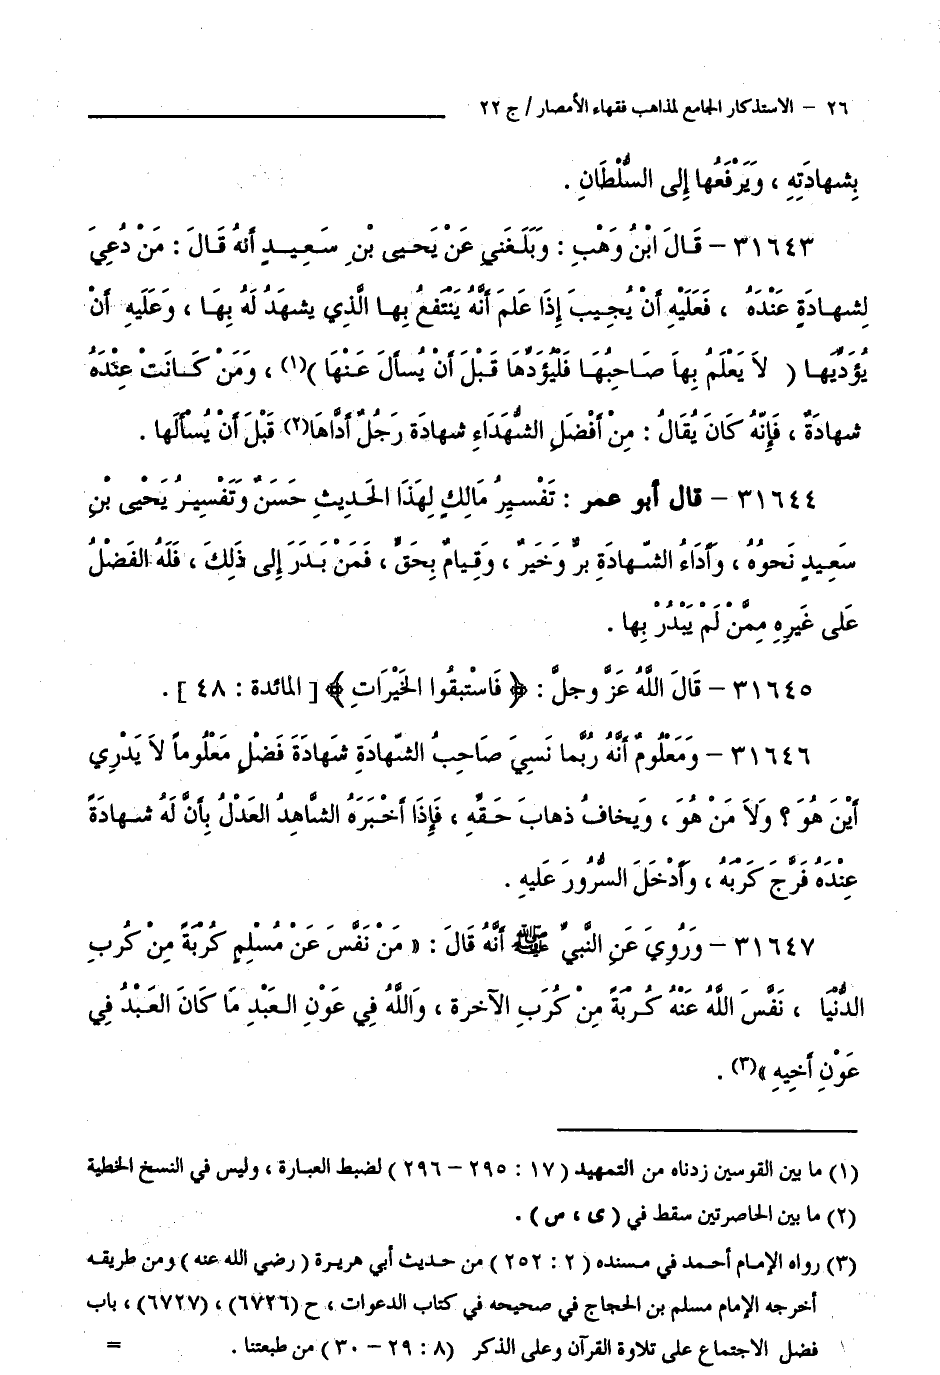 ٢٦ – الاستذكار الجامع لمذاهب فقهاء الأمصار / ج ٢٢
بِشهادَتِهِ ، وَيَرْفَعُها إِلى السُّلْطَانِ .
٣١٦٤٣ – قَالَ ابْنُ وَهْبٍ : وَبَلَغَنِي عَنْ يَحيى بْنِ سَعِيدٍ أَنهُ قَالَ : مَنْ دُعِيَ
لِشهادَةٍ عَنْدَهُ ، فَعَلَيْهِ أَنْ يُجِيبَ إِذَا عَلمَ أَنَّهُ يَنْتَفعُ بِها الَّذِي يشهدُ لَهُ بِهَا ، وعَلَيهِ أَنْ
يُؤدِّيَها ( لاَ يَعْلَمُ بِها صَاحِبُهَا فَلْيُؤَدِّهَا قَبْلَ أَنْ يُسأَلَ عَنْهَا )(١) ، وَمَنْ كَانَتْ عِنْدَهُ
شهادَةٌ ، فَإِنَّهُ كَانَ يُقَالُ : مِنْ أَفْضَلِ الشُّهَدَاءِ شهادَة رَجُلٌ أَدَّاهَا(٢) قَبْلَ أَنْ يُسْأَلَها .
٣١٦٤٤ – قال أبو عمر : تَفْسِيرُ مَالِكٍ لِهَذَا الحَدِيثِ حَسَنٌ وَتَفْسِيرُ يَحْيى بْنِ
سَعِيدٍ نَحوُهُ ، وأَدَاءُ الشّهادَةِ بِرٌّ وَخَيرٌ ، وَقِيامٌ بِحَقٍّ ، فَمَنْ بَدَرَ إِلى ذَلِكَ ، فَلَهُ الفَضْلُ
عَلى غَيرِهِ مِمَّنْ لَمْ يَبْدُرْ بِها .
٣١٦٤٥ – قَالَ اللَّهُ عَزَّ وجلَّ : ﴿ فَاستبقُوا الخَيْرَاتِ ﴾ [ المائدة : ٤٨ ] .
٣١٦٤٦ – وَمَعْلُومٌ أَنَّهُ رُبَّما نَسِيَ صَاحِبُ الشّهادَةِ شهَادَةَ فَضْلٍ مَعْلُوماً لاَ يَدْرِي
أَيْنَ هُوَ ؟ وَلاَ مَنْ هُوَ ، وَيَخافُ ذهابَ حَقِّهِ ، فَإِذَا أَخْبَرَهُ الشَّاهِدُ العَدْلُ بِأَنَّ لَهُ شهادَةً
عِنْدَهُ فَرَّجَ كَرْبَهُ ، وَأَدْخَلَ السُّرُورَ عَلَيهِ .
٣١٦٤٧ – وَرُوِيَ عَنِ النَّبِيِّ ﷺ أَنَّهُ قَالَ : « مَنْ نَفَّسَ عَنْ مُسْلِمٍ كُرْبَةً مِنْ كُرَبِ
الدُّنْيَا ، نَفَّسَ اللَّهُ عَنْهُ كُرْبَةً مِنْ كُرَبِ الآخرة ، وَاللَّهُ فِي عَوْنِ العَبْدِ مَا كَانَ العَبْدُ فِي
عَوْنِ أَخِيهِ »(٣) .
(١) ما بين القوسين زدناه من التمهيد ( ١٧ : ٢٩٥ – ٢٩٦ ) لضبط العبارة ، وليس في النسخ الخطية
(٢) ما بين الحاصرتين سقط في ( ى ، ص ) .
(٣) رواه الإمام أحمد في مسنده ( ٢ : ٢٥٢ ) من حديث أبي هريرة ( رضي الله عنه ) ومن طريقه
أخرجه الإمام مسلم بن الحجاج في صحيحه في كتاب الدعوات ، ح (٦٧٢٦) ، (٦٧٢٧) ، باب
فضل الاجتماع على تلاوة القرآن وعلى الذكر (٨ : ٢٩ – ٣٠ ) من طبعتنا . =